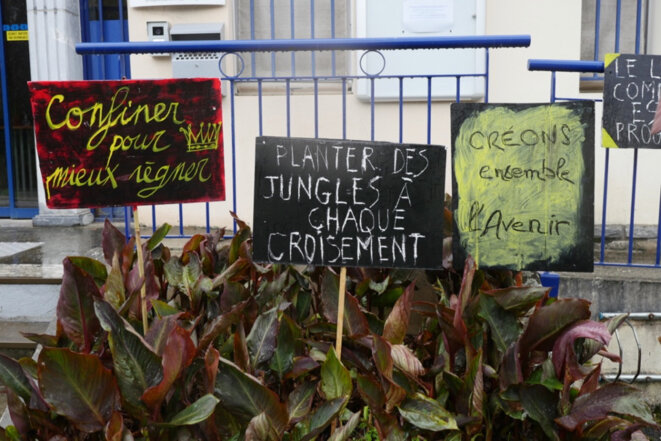 Confiner
pour
mieux règner
PLANTER DES
JUNGLES À
CHAQUE
CROISEMENT
CRÉONS
ensemble
l'Avenir
LE L
COM
ES
PRO